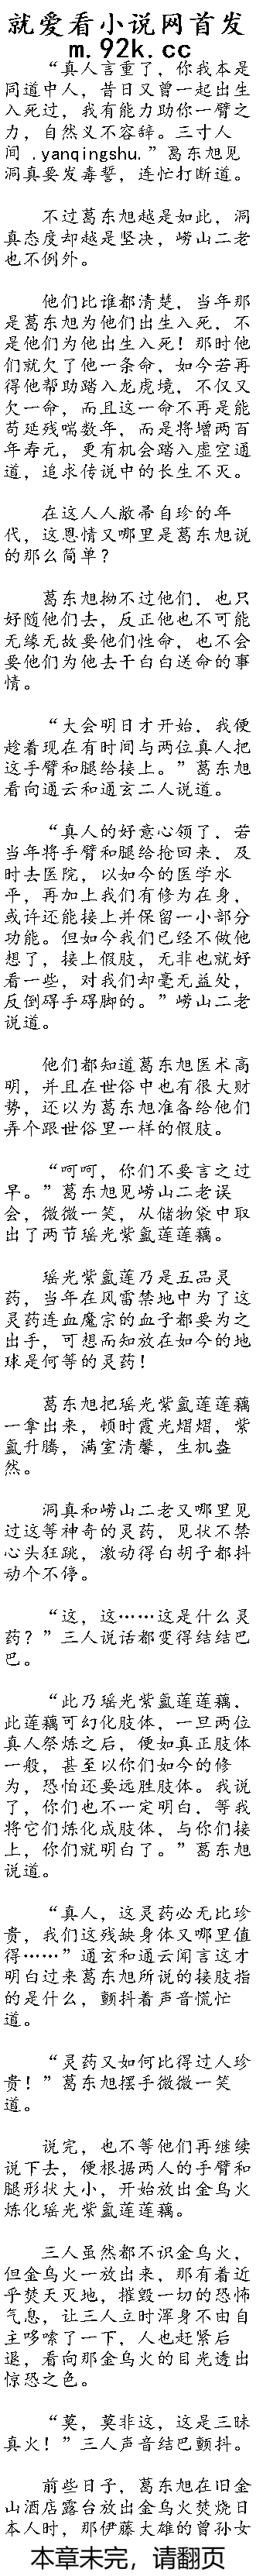 就爱看小说网首发
m.92k.cc
“真人言重了，你我本是
同道中人，昔日又曾一起出生
入死过，我有能力助你一臂之
力，自然义不容辞。三寸人
间 .yanqingshu.”葛东旭见
洞真要发毒誓，连忙打断道。
不过葛东旭越是如此，洞
真态度却越是坚决，崂山二老
也不例外。
他们比谁都清楚，当年那
是葛东旭为他们出生入死，不
是他们为他出生入死！那时他
们就欠了他一条命，如今若再
得他帮助踏入龙虎境，不仅又
欠一命，而且这一命不再是能
苟延残喘数年，而是将增两百
年寿元，更有机会踏入虚空通
道，追求传说中的长生不灭。
在这人人敝帚自珍的年
代，这恩情又哪里是葛东旭说
的那么简单？
葛东旭拗不过他们，也只
好随他们去，反正他也不可能
无缘无故要他们性命，也不会
要他们为他去干白白送命的事
情。
“大会明日才开始，我便
趁着现在有时间与两位真人把
这手臂和腿给接上。”葛东旭
看向通云和通玄二人说道。
“真人的好意心领了，若
当年将手臂和腿给抢回来，及
时去医院，以如今的医学水
平，再加上我们有修为在身，
或许还能接上并保留一小部分
功能。但如今我们已经不做他
想了，接上假肢，无非也就好
看一些，对我们却毫无益处，
反倒碍手碍脚的。”崂山二老
说道。
他们都知道葛东旭医术高
明，并且在世俗中也有很大财
势，还以为葛东旭准备给他们
弄个跟世俗里一样的假肢。
“呵呵，你们不要言之过
早。”葛东旭见崂山二老误
会，微微一笑，从储物袋中取
出了两节瑶光紫氤莲莲藕。
瑶光紫氤莲乃是五品灵
药，当年在风雷禁地中为了这
灵药连血魔宗的血子都要为之
出手，可想而知放在如今的地
球是何等的灵药！
葛东旭把瑶光紫氤莲莲藕
一拿出来，顿时霞光熠熠，紫
氤升腾，满室清馨，生机盎
然。
洞真和崂山二老又哪里见
过这等神奇的灵药，见状不禁
心头狂跳，激动得白胡子都抖
动个不停。
“这，这……这是什么灵
药？”三人说话都变得结结巴
巴。
“此乃瑶光紫氤莲莲藕，
此莲藕可幻化肢体，一旦两位
真人祭炼之后，便如真正肢体
一般，甚至以你们如今的修
为，恐怕还要远胜肢体。我说
了，你们也不一定明白，等我
将它们炼化成肢体，与你们接
上，你们就明白了。”葛东旭
说道。
“真人，这灵药必无比珍
贵，我们这残缺身体又哪里值
得……”通玄和通云闻言这才
明白过来葛东旭所说的接肢指
的是什么，颤抖着声音慌忙
道。
“灵药又如何比得过人珍
贵！”葛东旭摆手微微一笑
道。
说完，也不等他们再继续
说下去，便根据两人的手臂和
腿形状大小，开始放出金乌火
炼化瑶光紫氤莲莲藕。
三人虽然都不识金乌火，
但金乌火一放出来，那有着近
乎焚天灭地，摧毁一切的恐怖
气息，让三人立时浑身不由自
主哆嗦了一下，人也赶紧后
退，看向那金乌火的目光透出
惊恐之色。
“莫，莫非这，这是三昧
真火！”三人声音结巴颤抖。
前些日子，葛东旭在旧金
山酒店露台放出金乌火焚烧日
本人时，那伊藤大雄的曾孙女
本章未完，请翻页